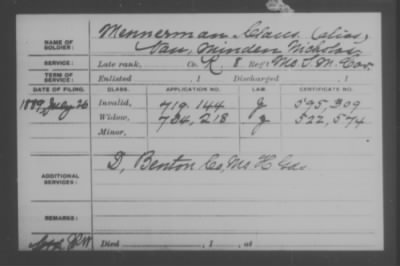 NAME OF SOLDIER: Mennerman, Claus, (Alias,
Van, Minden Nicholas
SERVICE: Late rank, Co. K, 8 Reg't Mo. S. M. Cav.
TERM OF SERVICE: Enlisted , 1 Discharged , 1
DATE OF FILING. CLASS. APPLICATION NO. LAW. CERTIFICATE NO.
1889, July 26 Invalid, 719,144 g 595,309
Widow, 784,218 g 522,574
Minor,
ADDITIONAL SERVICES: D, Benton Co, Mo. H Gds.
REMARKS:
Died , 1 , at